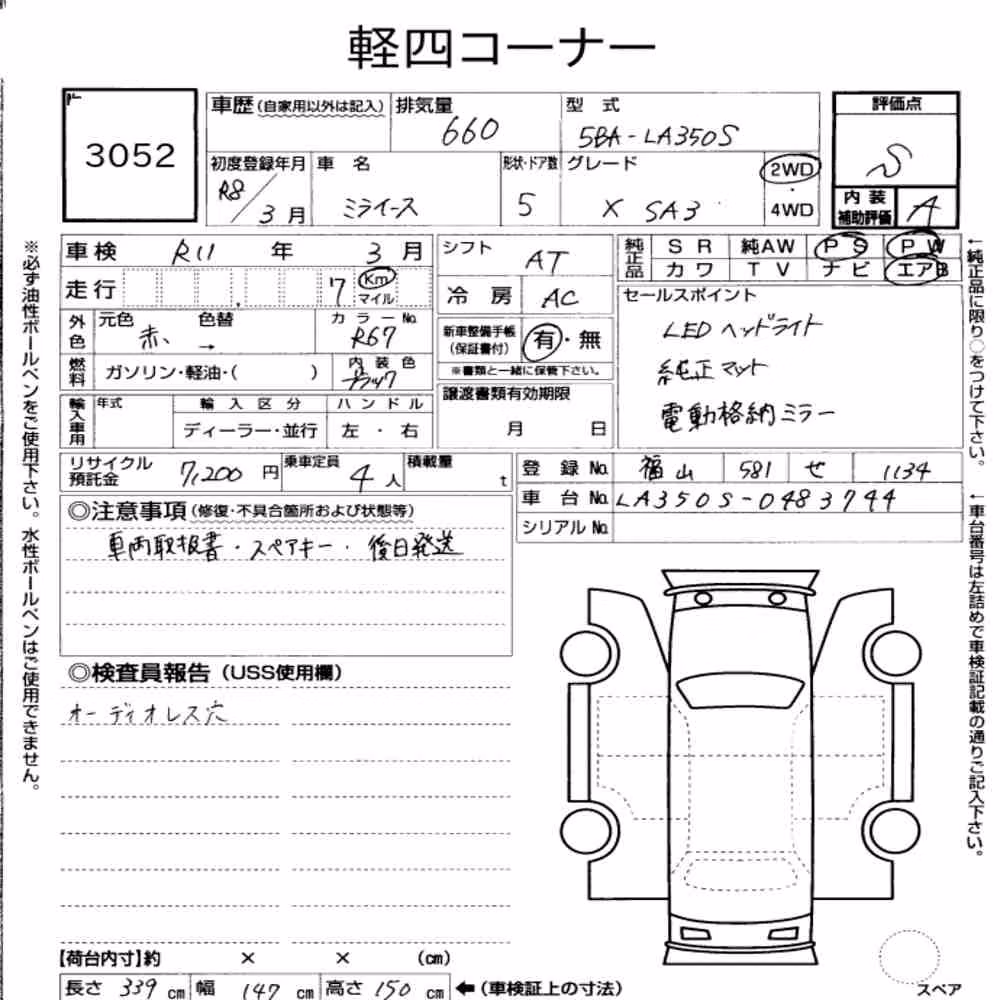 軽四コーナー
3052
車歴(自家用以外は記入) 排気量 660 型 式 5BA-LA350S 評価点 S
初度登録年月 R8/3月 車 名 ミライース 形状・ドア数 5 グレード X SA3 2WD・4WD
内装補助評価 A
車検 R11 年 3月 シフト AT 純正品 SR 純AW PS PW
カワ TV ナビ エアB
走行 7 Km マイル 冷房 AC セールスポイント
外色 元色 赤 色替 → カラーNo. R67 新車整備手帳(保証書付) 有・無 LEDヘッドライト
※書類と一緒に保管下さい。
燃料 ガソリン・軽油・( ) 内装色 ブラック 純正マット
譲渡書類有効期限 月 日 電動格納ミラー
輸入車用 年式 輸入区分 ハンドル
ディーラー・並行 左・右
リサイクル預託金 7,200円 乗車定員 4人 積載量 t 登録No. 福山 581 せ 1134
車台No. LA350S-0483744
シリアルNo.
◎注意事項(修復・不具合箇所および状態等)
車両取扱書・スペアキー・後日発送
◎検査員報告(USS使用欄)
オーディオレス穴
【荷台内寸】約 × × (cm)
長さ 339 cm 幅 147 cm 高さ 150 cm ←(車検証上の寸法)
スペア
※必ず油性ボールペンをご使用下さい。水性ボールペンはご使用できません。
←純正品に限り○をつけて下さい。
←車台番号は左詰めで車検証記載の通りご記入下さい。